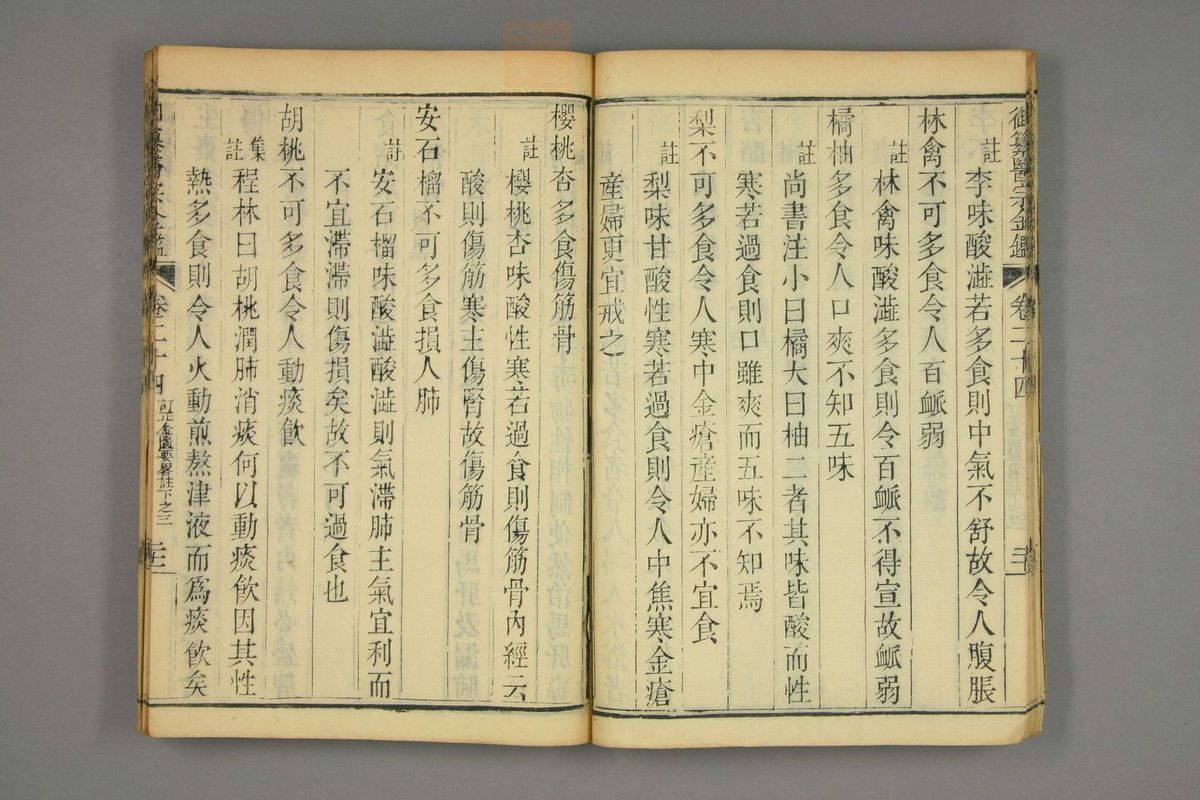 御纂醫宗金鑑 卷二十四
註 李味酸澁若多食則中氣不舒故令人腹脹
林禽不可多食令人百衇弱
註 林禽味酸澁多食則令百衇不得宣故衇弱
橘柚多食令人口爽不知五味
註 尚書注小曰橘大曰柚二者其味皆酸而性
寒若過食則口雖爽而五味不知焉
梨不可多食令人寒中金瘡產婦亦不宜食
註 梨味甘酸性寒若過食則令人中焦寒金瘡
產婦更宜戒之
櫻桃杏多食傷筋骨
註 櫻桃杏味酸性寒若過食則傷筋骨內經云
酸則傷筋寒主傷腎故傷筋骨
安石榴不可多食損人肺
註 安石榴味酸澁酸澁則氣滯肺主氣宜利而
不宜滯滯則傷損矣故不可過食也
胡桃不可多食令人動痰飲
集註 程林曰胡桃潤肺消痰何以動痰飲因其性
熱多食則令人火動煎熬津液而爲痰飲矣
卷二十四 訂正金匱要畧註下之三